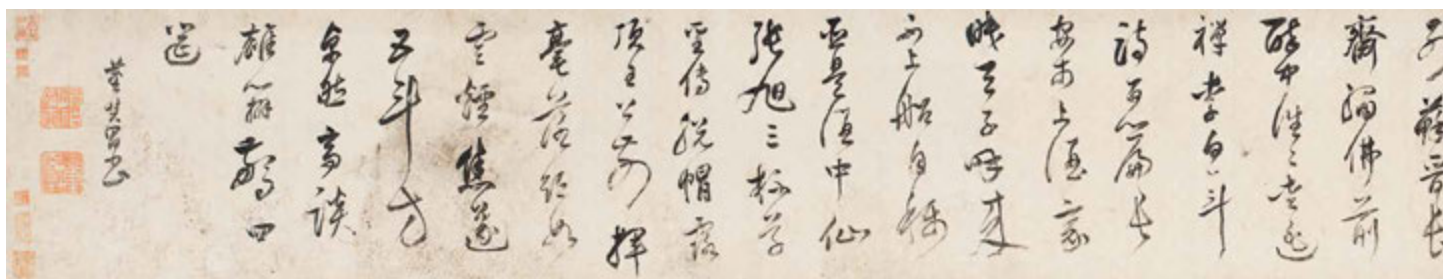 前蘇晉長
齋繡佛前
醉中往〻愛逃
禪李白一斗
詩百篇長
安市上酒家
眠天子呼來
不上船自稱
臣是酒中仙
張旭三杯草
聖傳脫帽露
頂王公前揮
毫落紙如
雲煙焦遂
五斗方
卓然高談
雄辯驚四
筵
董其昌書